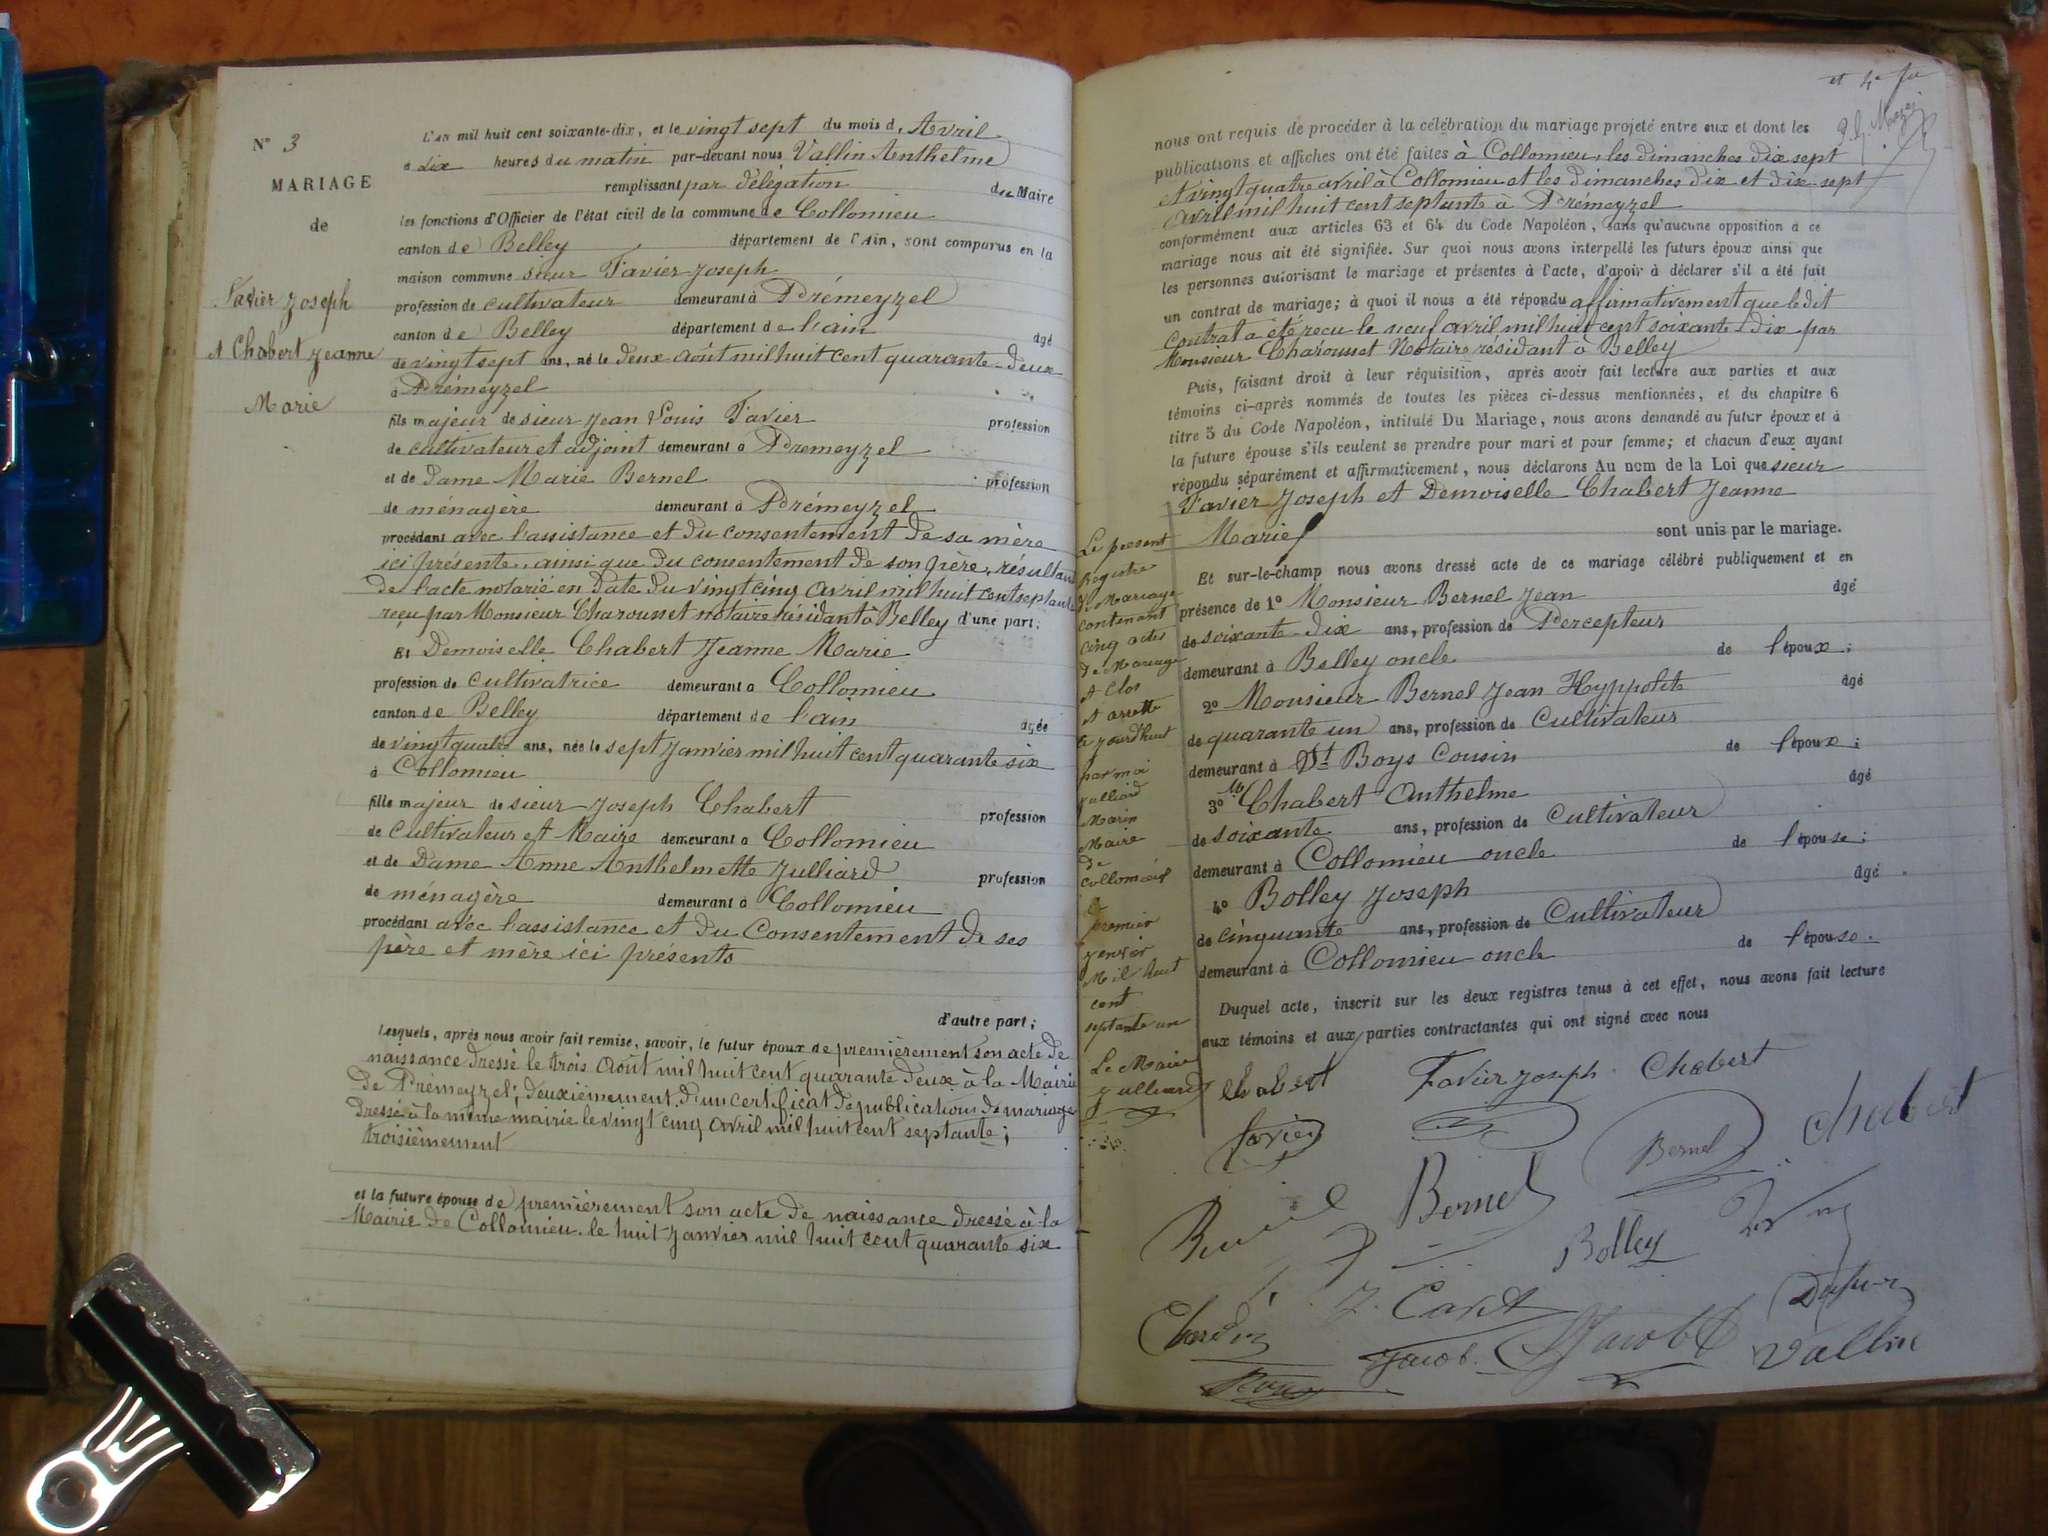 N° 3
MARIAGE
de
Favier Joseph
et Chabert Jeanne
Marie
L'an mil huit cent soixante-dix, et le vingt sept du mois d'Avril
a dix heures du matin par-devant nous Vallin Anthelme
remplissant par délégation du Maire
les fonctions d'Officier de l'état civil de la commune de Collomieu
canton de Belley département de l'Ain, sont comparus en la
maison commune sieur Favier Joseph
profession de cultivateur demeurant à Prémeyzel
canton de Belley département de l'ain âgé
de vingt sept ans, né le deux août mil huit cent quarante-deux
à Prémeyzel
fils majeur de sieur Jean Louis Favier profession
de cultivateur et adjoint demeurant à Premeyzel
et de Dame Marie Bernel profession
de ménagère demeurant à Prémeyzel
procédant avec l'assistance et du consentement de sa mère
ici présente, ainsi que du consentement de son père, résultant
de l'acte notarié en date du vingt cinq avril mil huit cent septante
reçu par Monsieur Charousset notaire résidant à Belley d'une part;
Et Demoiselle Chabert Jeanne Marie
profession de cultivatrice demeurant à Collomieu
canton de Belley département de l'ain âgée
de vingt quatre ans, née le sept Janvier mil huit cent quarante six
à Collomieu
fille majeur de sieur Joseph Chabert profession
de Cultivateur et Maire demeurant à Collomieu
et de Dame Anne Anthelmette Julliard profession
de ménagère demeurant à Collomieu
procédant avec l'assistance et du Consentement de ses
père et mère ici présents
d'autre part;
Lesquels, après nous avoir fait remise, savoir, le futur époux de premièrement son acte de
naissance dressé le trois Août mil huit cent quarante deux à la Mairie
de Prémeyzel; deuxièmement d'un certificat de publications de mariage
dressé à la même mairie le vingt cinq avril mil huit cent septante;
troisièmement
et la future épouse de premièrement son acte de naissance dressé à la
Mairie de Collomieu le huit Janvier mil huit cent quarante six
et 4e
nous ont requis de procéder à la célébration du mariage projeté entre eux et dont les
publications et affiches ont été faites à Collomieu, les dimanches dix sept
et vingt quatre avril à Collomieu et les dimanches dix et dix-sept
avril mil huit cent septante à Prémeyzel
conformément aux articles 63 et 64 du Code Napoléon, sans qu'aucune opposition à ce
mariage nous ait été signifiée. Sur quoi nous avons interpellé les futurs époux ainsi que
les personnes autorisant le mariage et présentes à l'acte, d'avoir à déclarer s'il a été fait
un contrat de mariage; à quoi il nous a été répondu affirmativement que le dit
Contrat a été reçu le neuf avril mil huit cent soixante dix par
Monsieur Charousset Notaire résidant à Belley
Puis, faisant droit à leur réquisition, après avoir fait lecture aux parties et aux
témoins ci-après nommés de toutes les pièces ci-dessus mentionnées, et du chapitre 6
titre 5 du Code Napoléon, intitulé Du Mariage, nous avons demandé au futur époux et à
la future épouse s'ils veulent se prendre pour mari et pour femme; et chacun d'eux ayant
répondu séparément et affirmativement, nous déclarons Au nom de la Loi que sieur
Favier Joseph et Demoiselle Chabert Jeanne
Marie sont unis par le mariage.
Et sur-le-champ nous avons dressé acte de ce mariage célébré publiquement et en
présence de 1° Monsieur Bernel Jean âgé
de soixante-dix ans, profession de Percepteur
demeurant à Belley oncle de l'époux;
2° Monsieur Bernel Jean Hyppolite âgé
de quarante un ans, profession de Cultivateur
demeurant à St Boys Cousin de l'époux;
3° Chabert Anthelme âgé
de soixante ans, profession de Cultivateur
demeurant à Collomieu oncle de l'épouse;
4° Bolley Joseph âgé
de cinquante ans, profession de Cultivateur
demeurant à Collomieu oncle de l'épouse.
Duquel acte, inscrit sur les deux registres tenus à cet effet, nous avons fait lecture
aux témoins et aux parties contractantes qui ont signé avec nous
Le present
Registre
de Mariage
contenant
cinq actes
de Mariage
et Clos
et arretté
ce jourd'huit
par moi
Julliard
Marin
Maire
de
Collomieu
le
premier
Janvier
Mil huit
cent
septante un
Le Maire
Julliard
Chabert Favier Joseph Chabert
Favier Bernel Chabert
Bernel
Bolley
J. Caret
Jacob Jacob
Vallin